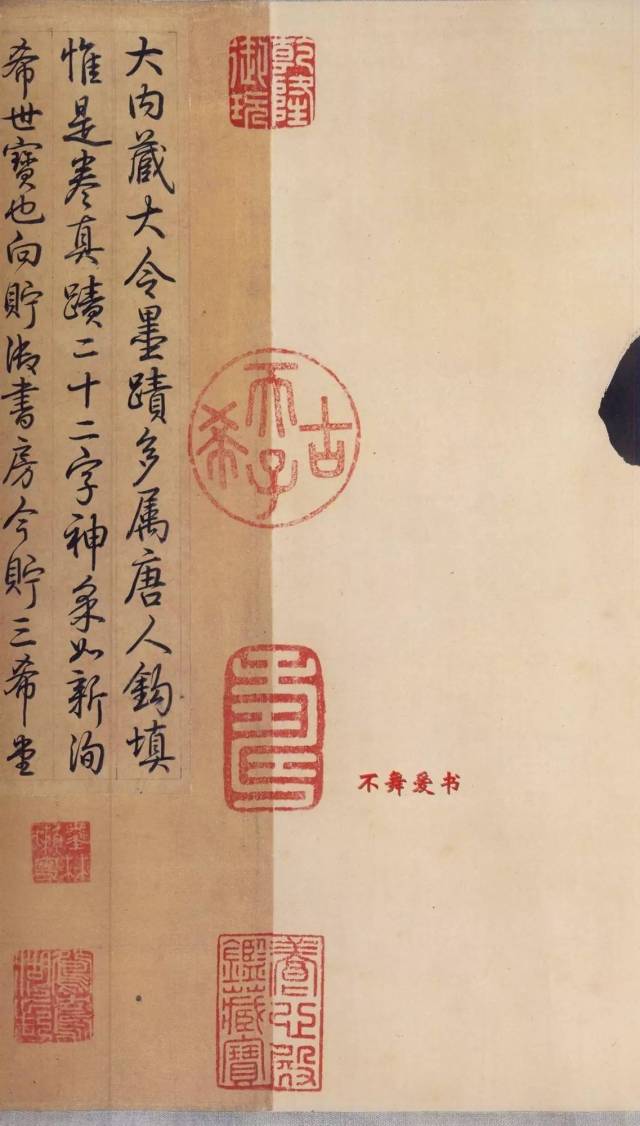 乾隆
御玩
古希天子
壽
養心殿
鑑藏寶
不舞爱书
大内藏大令墨蹟多属唐人鈎填
惟是卷真蹟二十二字神采如新洵
希世寶也向貯御書房今貯三希堂